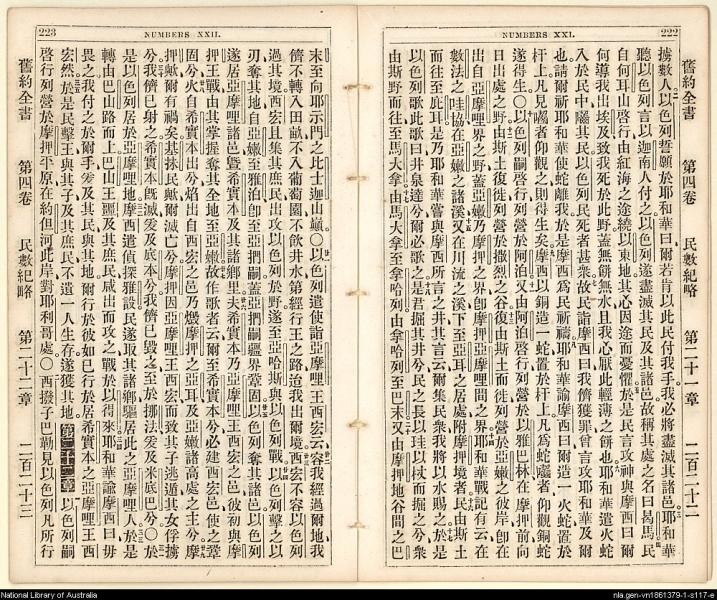 222
NUMBERS XXI.
舊約全書 第四卷 民數紀略 第二十一章 二百二十二
擄數人以色列誓願於耶和華曰爾若肯以此民付我手我必將盡滅其諸邑耶和華
聽以色列言以迦南人付之以色列遂盡滅其民及其諸邑故稱其處之名曰曷馬民
自何耳山啓行由紅海之途繞以東地其心因途而憂懼於是民言攻神與摩西曰爾
何導我出埃及致我死於此野蓋無餅無水且我心厭此輕薄之餅也耶和華遣火蛇
入於民中囓其民以色列民死者甚衆故民詣摩西曰我儕獲罪曾言攻耶和華及爾
也請爾祈耶和華使蛇離我於是摩西爲民祈禱耶和華諭摩西曰爾造一火蛇置於
杆上凡見囓者仰觀之則得生矣摩西以銅造一蛇置於杆上凡爲蛇囓者仰觀銅蛇
遂得生〇以色列嗣啓行列營於阿泊又由阿泊啓行列營於以雅巴林在摩押前向
日出處之野由斯土復徙列營於撒烈之谷復由斯土而徙列營於亞嫩之彼岸卽在
出自亞摩哩界之野蓋亞嫩乃摩押之界卽摩押亞摩哩間之界耶和華戰記有云在
數法之哇協在亞嫩之諸溪又在川流之溪下至亞耳之居處附摩押境者民由斯土
而往至庇耳是乃耶和華嘗與摩西所言之井其言云爾集民衆我將以水賜之於是
以色列歌此歌曰井泉達兮爾必歌之是君掘其井兮民之長以珪以杖而掘之兮衆
由斯野而往至馬大拿由馬大拿至拿哈列由拿哈列至巴末又由摩押地谷間之巴
223
NUMBERS XXII.
末至向耶示門之比士迦山巔〇以色列遣使詣亞摩哩王西宏云容我經過爾地我
儕不轉入田畝不入葡萄園不飲井水第經行王之路迨我出爾境西宏不容以色列
過其境西宏且集其庶民出攻以色列於野遂至亞哈斯與以色列戰以色列擊之以
刃奪其地自亞嫩至雅泊卽至亞捫嗣蓋亞捫嗣疆界鞏固以色列奪其諸邑以色列
遂居亞摩哩諸邑暨希實本及其諸鄉里夫希實本乃亞摩哩王西宏之邑彼初與摩
押王戰由其掌握奪其全地至亞嫩故作歌者云爾至希實本兮必建西宏邑使之鞏
固兮火自希實本出兮焰出自西宏之邑兮燬摩押之亞耳及亞嫩諸高處之主兮摩
押歟爾有禍矣基抹民歟爾滅亡兮摩押因亞摩哩王西宏而致其子逃遁其女俘擄
兮我儕已射之兮希實本旣滅爰及底本兮我儕已毀之至於挪法爰及米底巴兮〇於
是以色列居於亞摩哩地摩西遣偵探雅設民遂取其諸鄉驅居此之亞摩哩人於是
轉由巴山路而上巴山王噩及其庶民咸出而攻之戰於以得來耶和華諭摩西曰毋
畏之我付之於爾手爰及其民與其地爾行於彼如已行於居希實本之亞摩哩王西
宏然於是民擊王與其子及其庶民不遺一人生存遂獲其地第二十二章以色列嗣
啓行列營於摩押平原在約但河此岸對耶利哥處〇西撥子巴勒見以色列凡所行
舊約全書 第四卷 民數紀略 第二十二章 二百二十三
National Library of Australia
nla.gen-vn1861379-1-s117-e